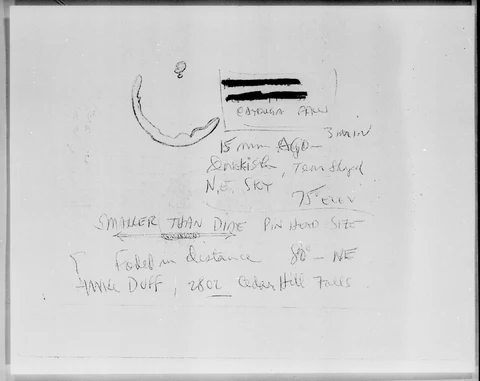 3 min
15 min Ago -
Darkish, Tear Shaped
N.E. SKY
75° ELEV
SMALLER THAN DIME PIN HEAD SIZE
Faded in distance 80° - NE
DUFF, 2802 Cedar Hill Falls